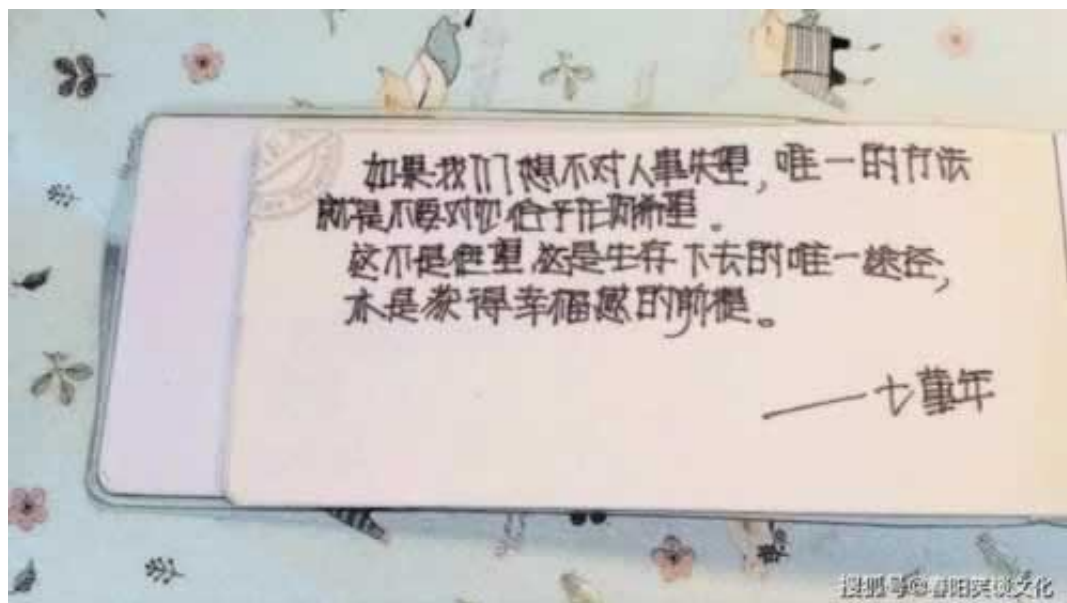 如果我们想不对人事失望，唯一的方法
就是不要对它给予任何希望。
这不是绝望，这是生存下去的唯一途径，
亦是获得幸福感的前提。
——七堇年
搜狐号@春阳文化